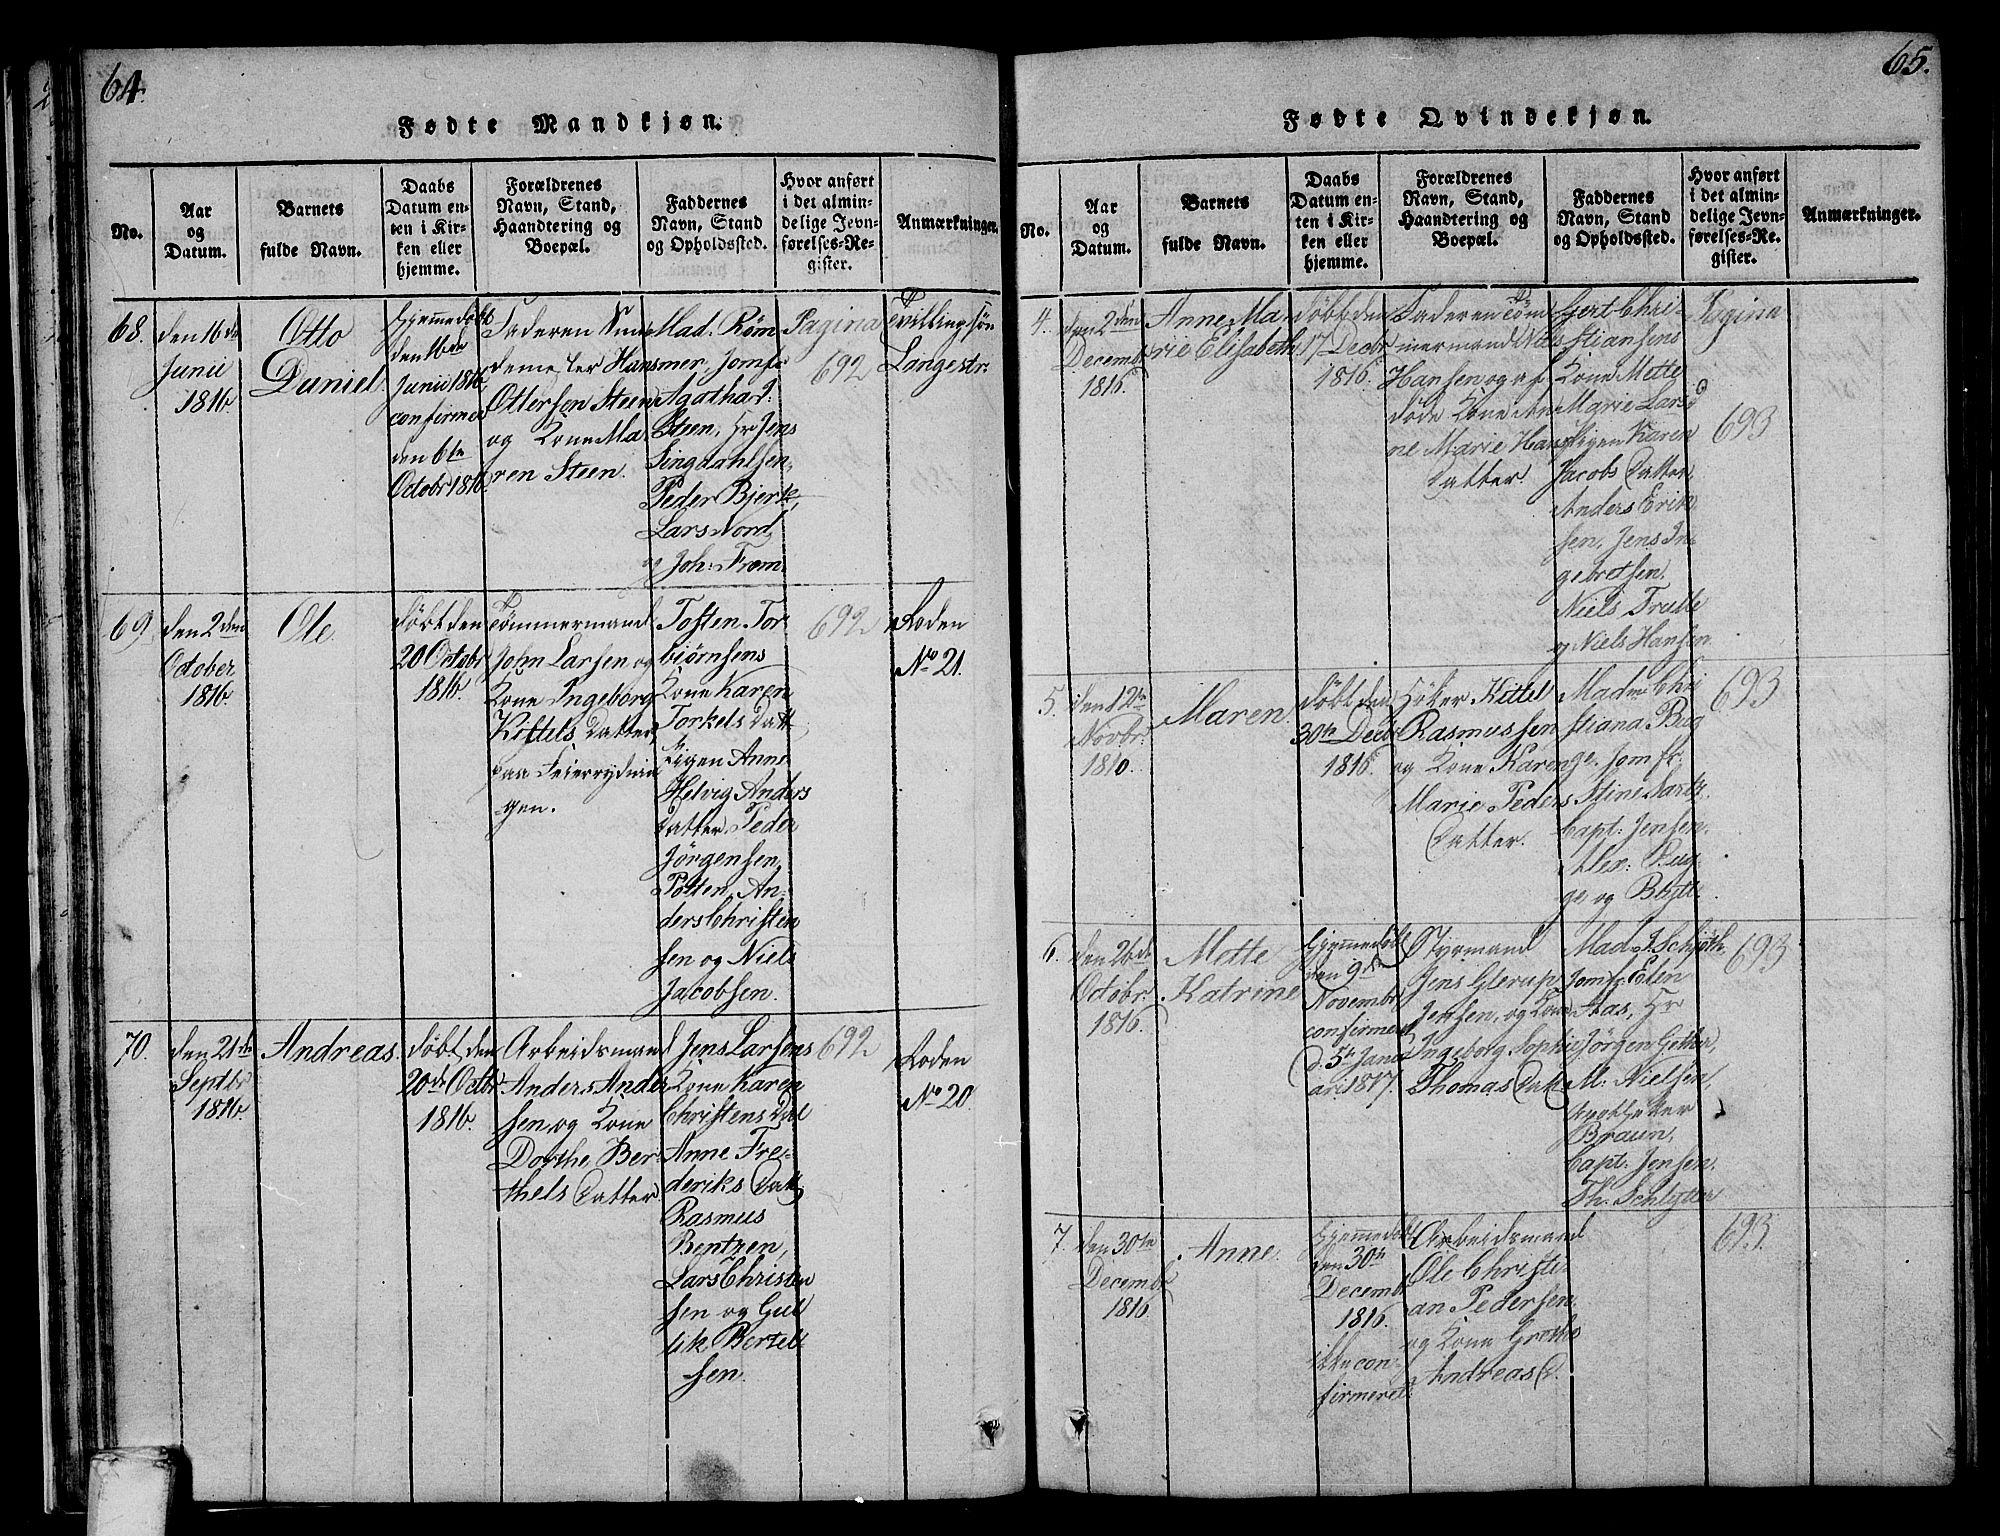 64.
Fødte Mandkjøn.
No.
Aar
og
Datum.
Barnets
fulde Navn.
Daabs
Datum en-
ten i Kir-
ken eller
hjemme.
Forældrenes
Navn, Stand,
Haandtering og
Boepæl.
Faddernes
Navn, Stand
og Opholdssted.
Hvor anført
i det almin-
delige Jevn-
førelses-Re-
gister.
Anmærkninger.
68.
den 16de
Junii
1816
Otto
Daniel
Hjemmedøbt
den 16de
Junii 1816
confirmer
den 6te
Octobr 1816.
Faderen
Hans
Ottersen Steen
og Kone Ma
ren Steen.
Mad. Røm
mer, Jomfr
Agatha J.
Steen, Hr Jens
Singdahlsen,
Peder Bjerk,
Lars Nord,
og Joh: From.
Pagina
692
Tvillingsøn
Langestr.
69
den 2den
October
1816
Ole.
døbt den
20 Octobr
1816
Tømmermand
John Larsen og
Kone Ingeborg
Kittels Datter,
paa Feierrydnin
gen.
Tosten Tor
biørnsens
Kone Karen
Torkels Datt,
Pigen Anne
Helvig Anders
Datter, Peder
Jørgensen
Potten, An-
ders Christen
sen og Niels
Jacobsen.
692
Roden
No 21.
70.
den 21de
Septbr
1816
Andreas.
døbt den
20de Octbr
1816.
Arbeidsmand
Anders Ander
sen og Kone
Dorthe Ber
thels Datter
Jens Larsens
Kone Karen
Christens Dat
Anne Fre-
deriks Datt,
Rasmus
Bentzen,
Lars Christen
sen og Gul
lik Bertel
sen.
692
Roden
No 20.
65.
Fødte Qvindekjøn.
No.
Aar
og
Datum.
Barnets
fulde Navn.
Daabs
Datum en-
ten i Kir-
ken eller
hjemme.
Forældrenes
Navn, Stand,
Haandtering og
Boepæl.
Faddernes
Navn, Stand
og Opholdssted.
Hvor anført
i det almin-
delige Jevn-
førelses-Re-
gister.
Anmærkninger.
4.
den 2den
Decembr
1816
Anne Ma
rie Elisabeth
døbt den
17 Decbr
1816.
Faderen Tøm
mermand Niels
Hansen og af
døde Kone An
ne Marie Hans
Datter.
Gjert Chri-
stiansens
Kone Mette
Marie Lars D
Pigen Karen
Jacobs Datter,
Anders Erik
sen, Jens In
gebretsen,
Niels Trulle
og Niels Hansen
Pagina
693
5.
den 12te
Novbr.
1816.
Maren.
døbt den
30te Decbr
1816.
Høker Kittel
Rasmussen
og Kone Karen
Marie Peders
Datter.
Madm Chri
stiana Bug
ge, Jomfr.
Stine
Capt: Jensen,
Alex: Bug
ge, og
693
6.
den 26de
Octobr.
1816.
Mette
Katrine
Hjemmedøbt
den 9de
Novembr
confirmeret
d. 5te Janu
ari 1817.
Styrmand
Jens Glerup
Jensen, og Kone
Ingeborg Sophie
Thomas Datt
Mad. J. Schjøth,
Jomfr: Elen
Aas, Hr
Jørgen
M. Nielsen,
Apotheker
Braun,
Capt: Jensen,
Th: Schlytter
693
7.
den 30te
Decembr
1816
Anne.
Hjemmedøbt
den 30te
Decembr
1816.
ikke con-
firmeret.
Arbeidsmand
Ole Christi-
an Pedersen
og Kone Grethe
Andreas D.
693.